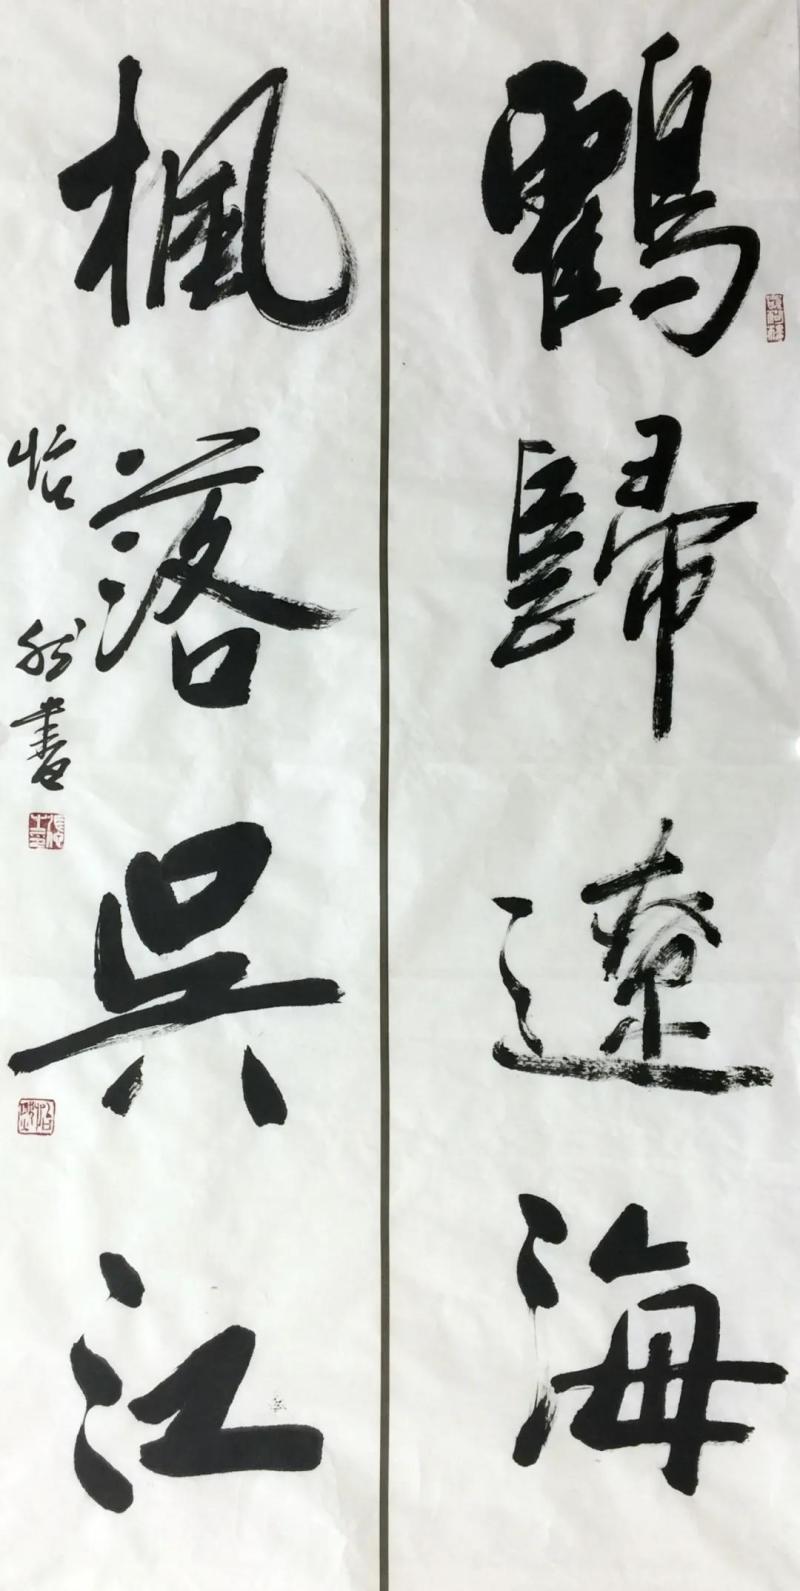 鶴歸遼海
楓落吳江
怡然書